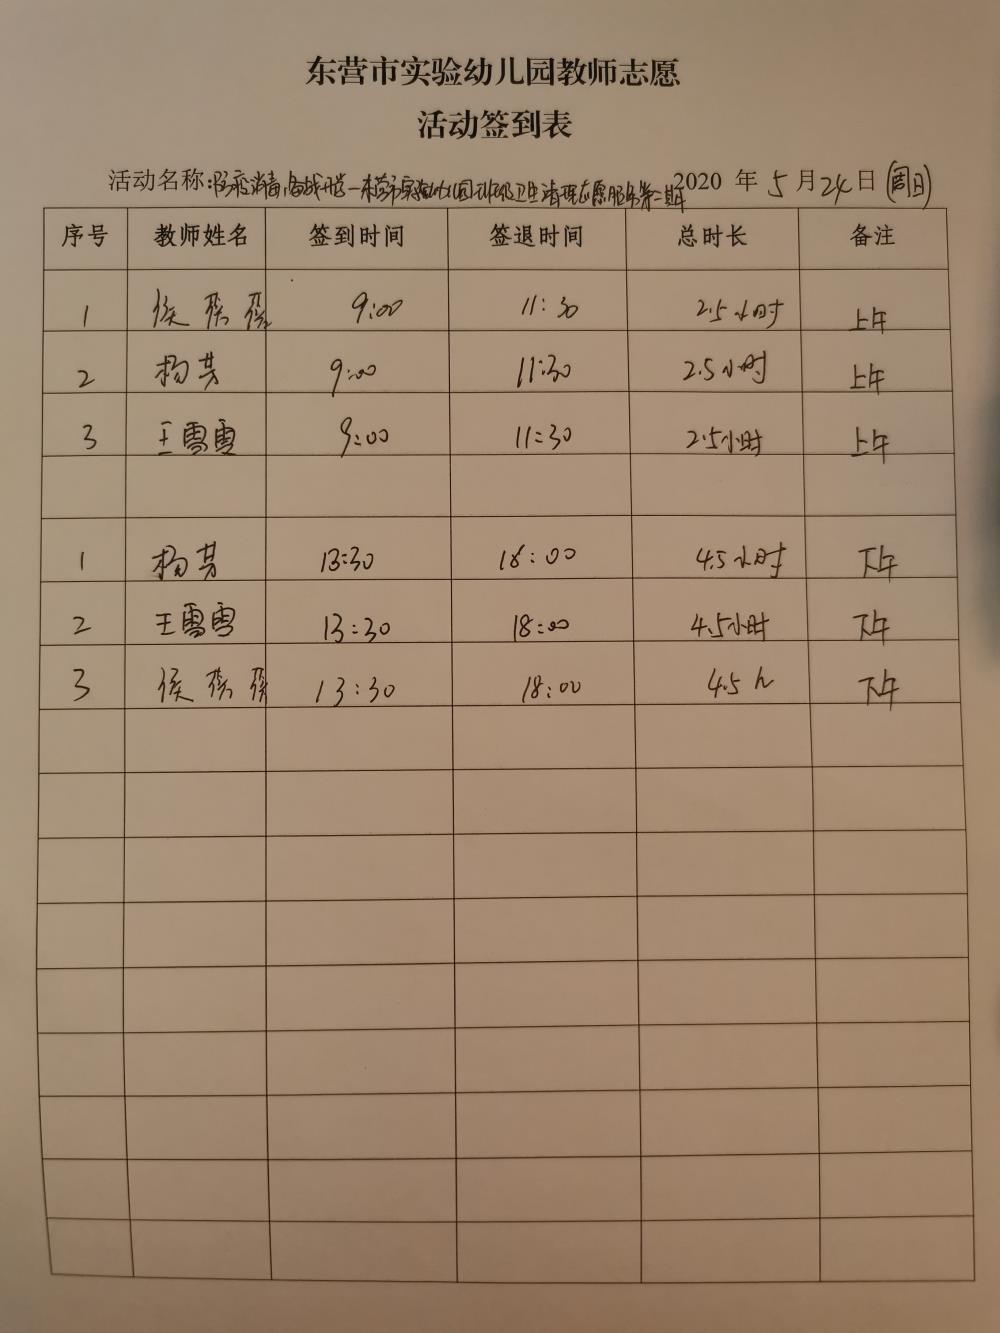 东营市实验幼儿园教师志愿
活动签到表
活动名称:防疫消毒,备战开学—东营市实验幼儿园班级卫生清理志愿服务第二期 2020 年 5 月 24 日 (周日)
序号 教师姓名 签到时间 签退时间 总时长 备注
1 侯 9:00 11:30 2.5小时 上午
2 杨芳 9:00 11:30 2.5小时 上午
3 王雪雪 9:00 11:30 2.5小时 上午
1 杨芳 13:30 18:00 4.5小时 下午
2 王雪雪 13:30 18:00 4.5小时 下午
3 侯 13:30 18:00 4.5h 下午